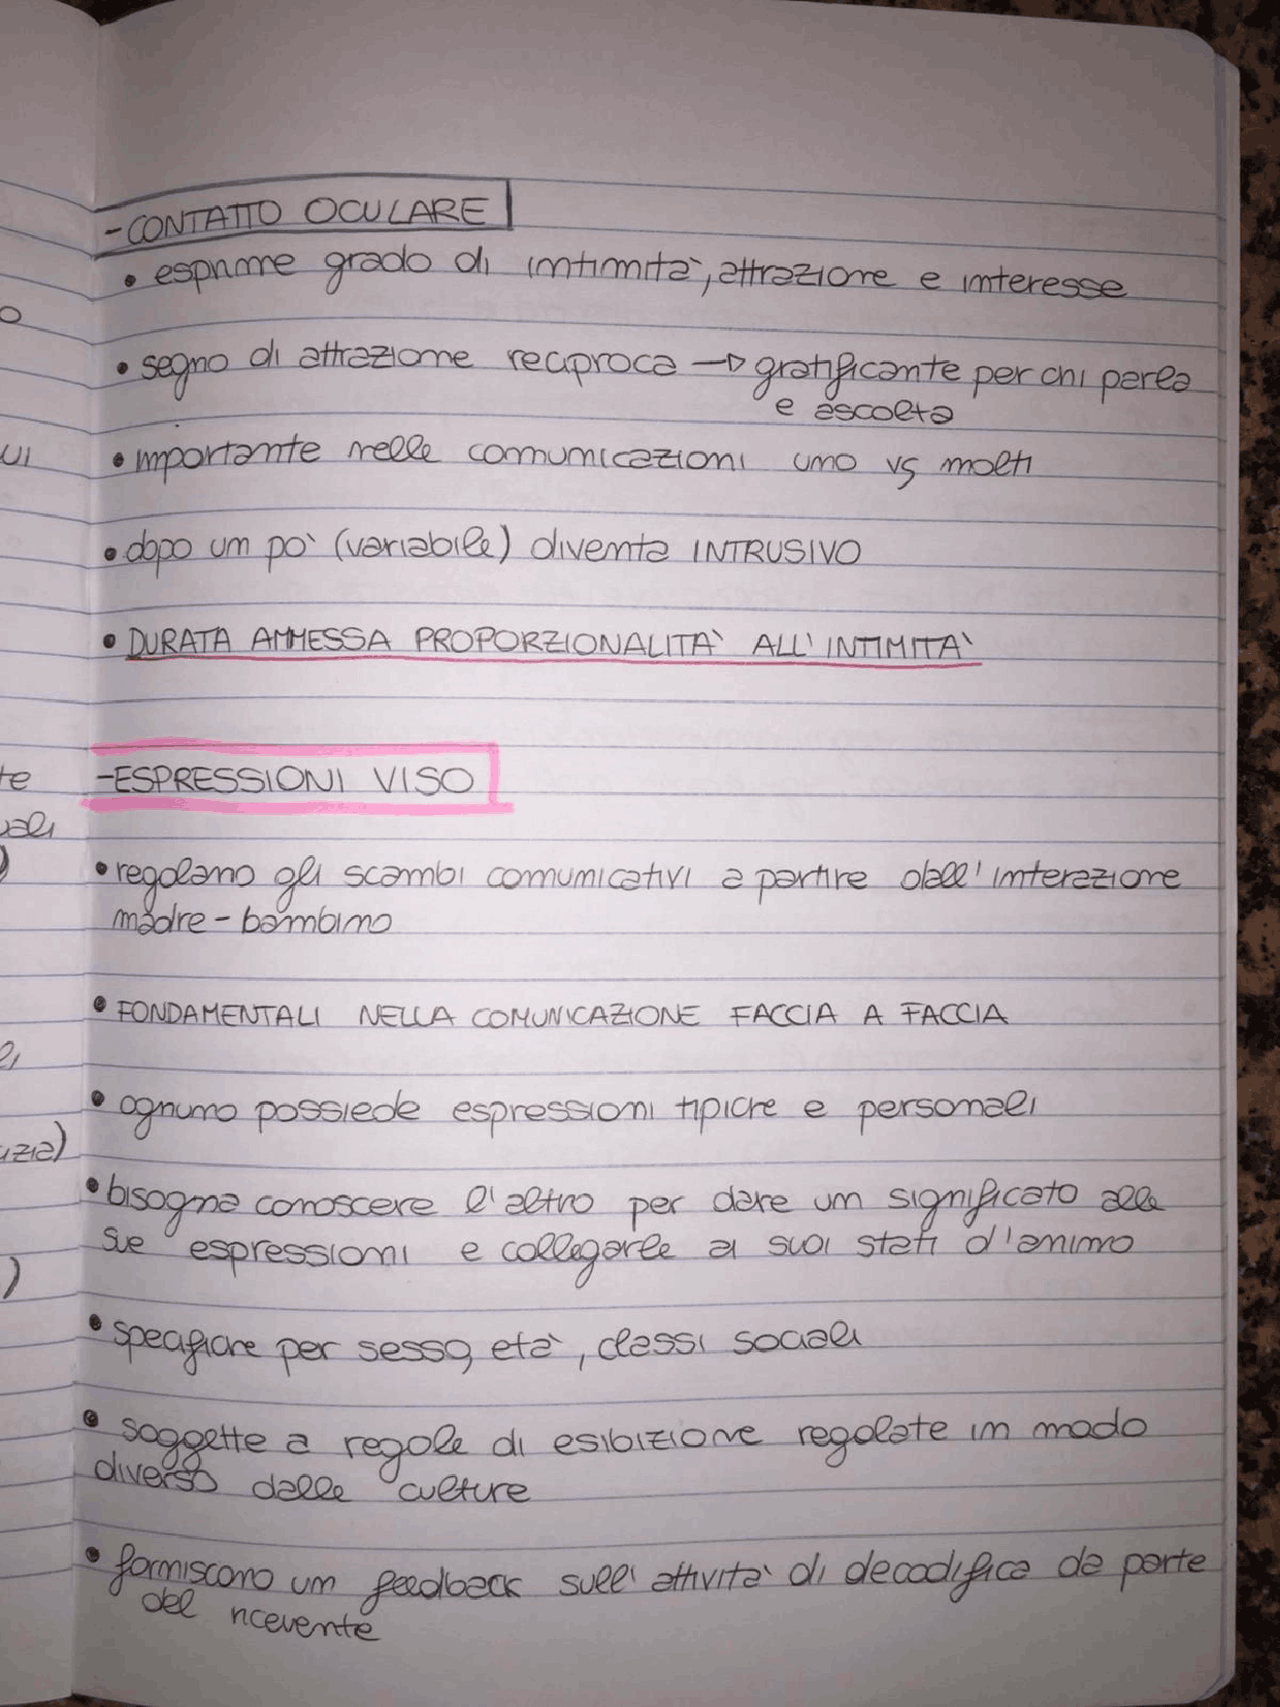 -CONTATTO OCULARE
• esprime grado di intimità, attrazione e interesse
• segno di attrazione reciproca → gratificante per chi parla
e ascolta
• importante nelle comunicazioni uno vs molti
• dopo un pò (variabile) diventa INTRUSIVO
• DURATA AMMESSA PROPORZIONALITA' ALL'INTIMITA'
-ESPRESSIONI VISO
• regolano gli scambi comunicativi a partire dall'interazione
madre-bambino
• FONDAMENTALI NELLA COMUNICAZIONE FACCIA A FACCIA
• ognuno possiede espressioni tipiche e personali
• bisogna conoscere l'altro per dare un significato alle
sue espressioni e collegarle ai suoi stati d'animo
• specifiche per sesso, età, classi sociali
• soggette a regole di esibizione regolate in modo
diverso dalle culture
• forniscono un feedback sull'attività di decodifica da parte
del ricevente